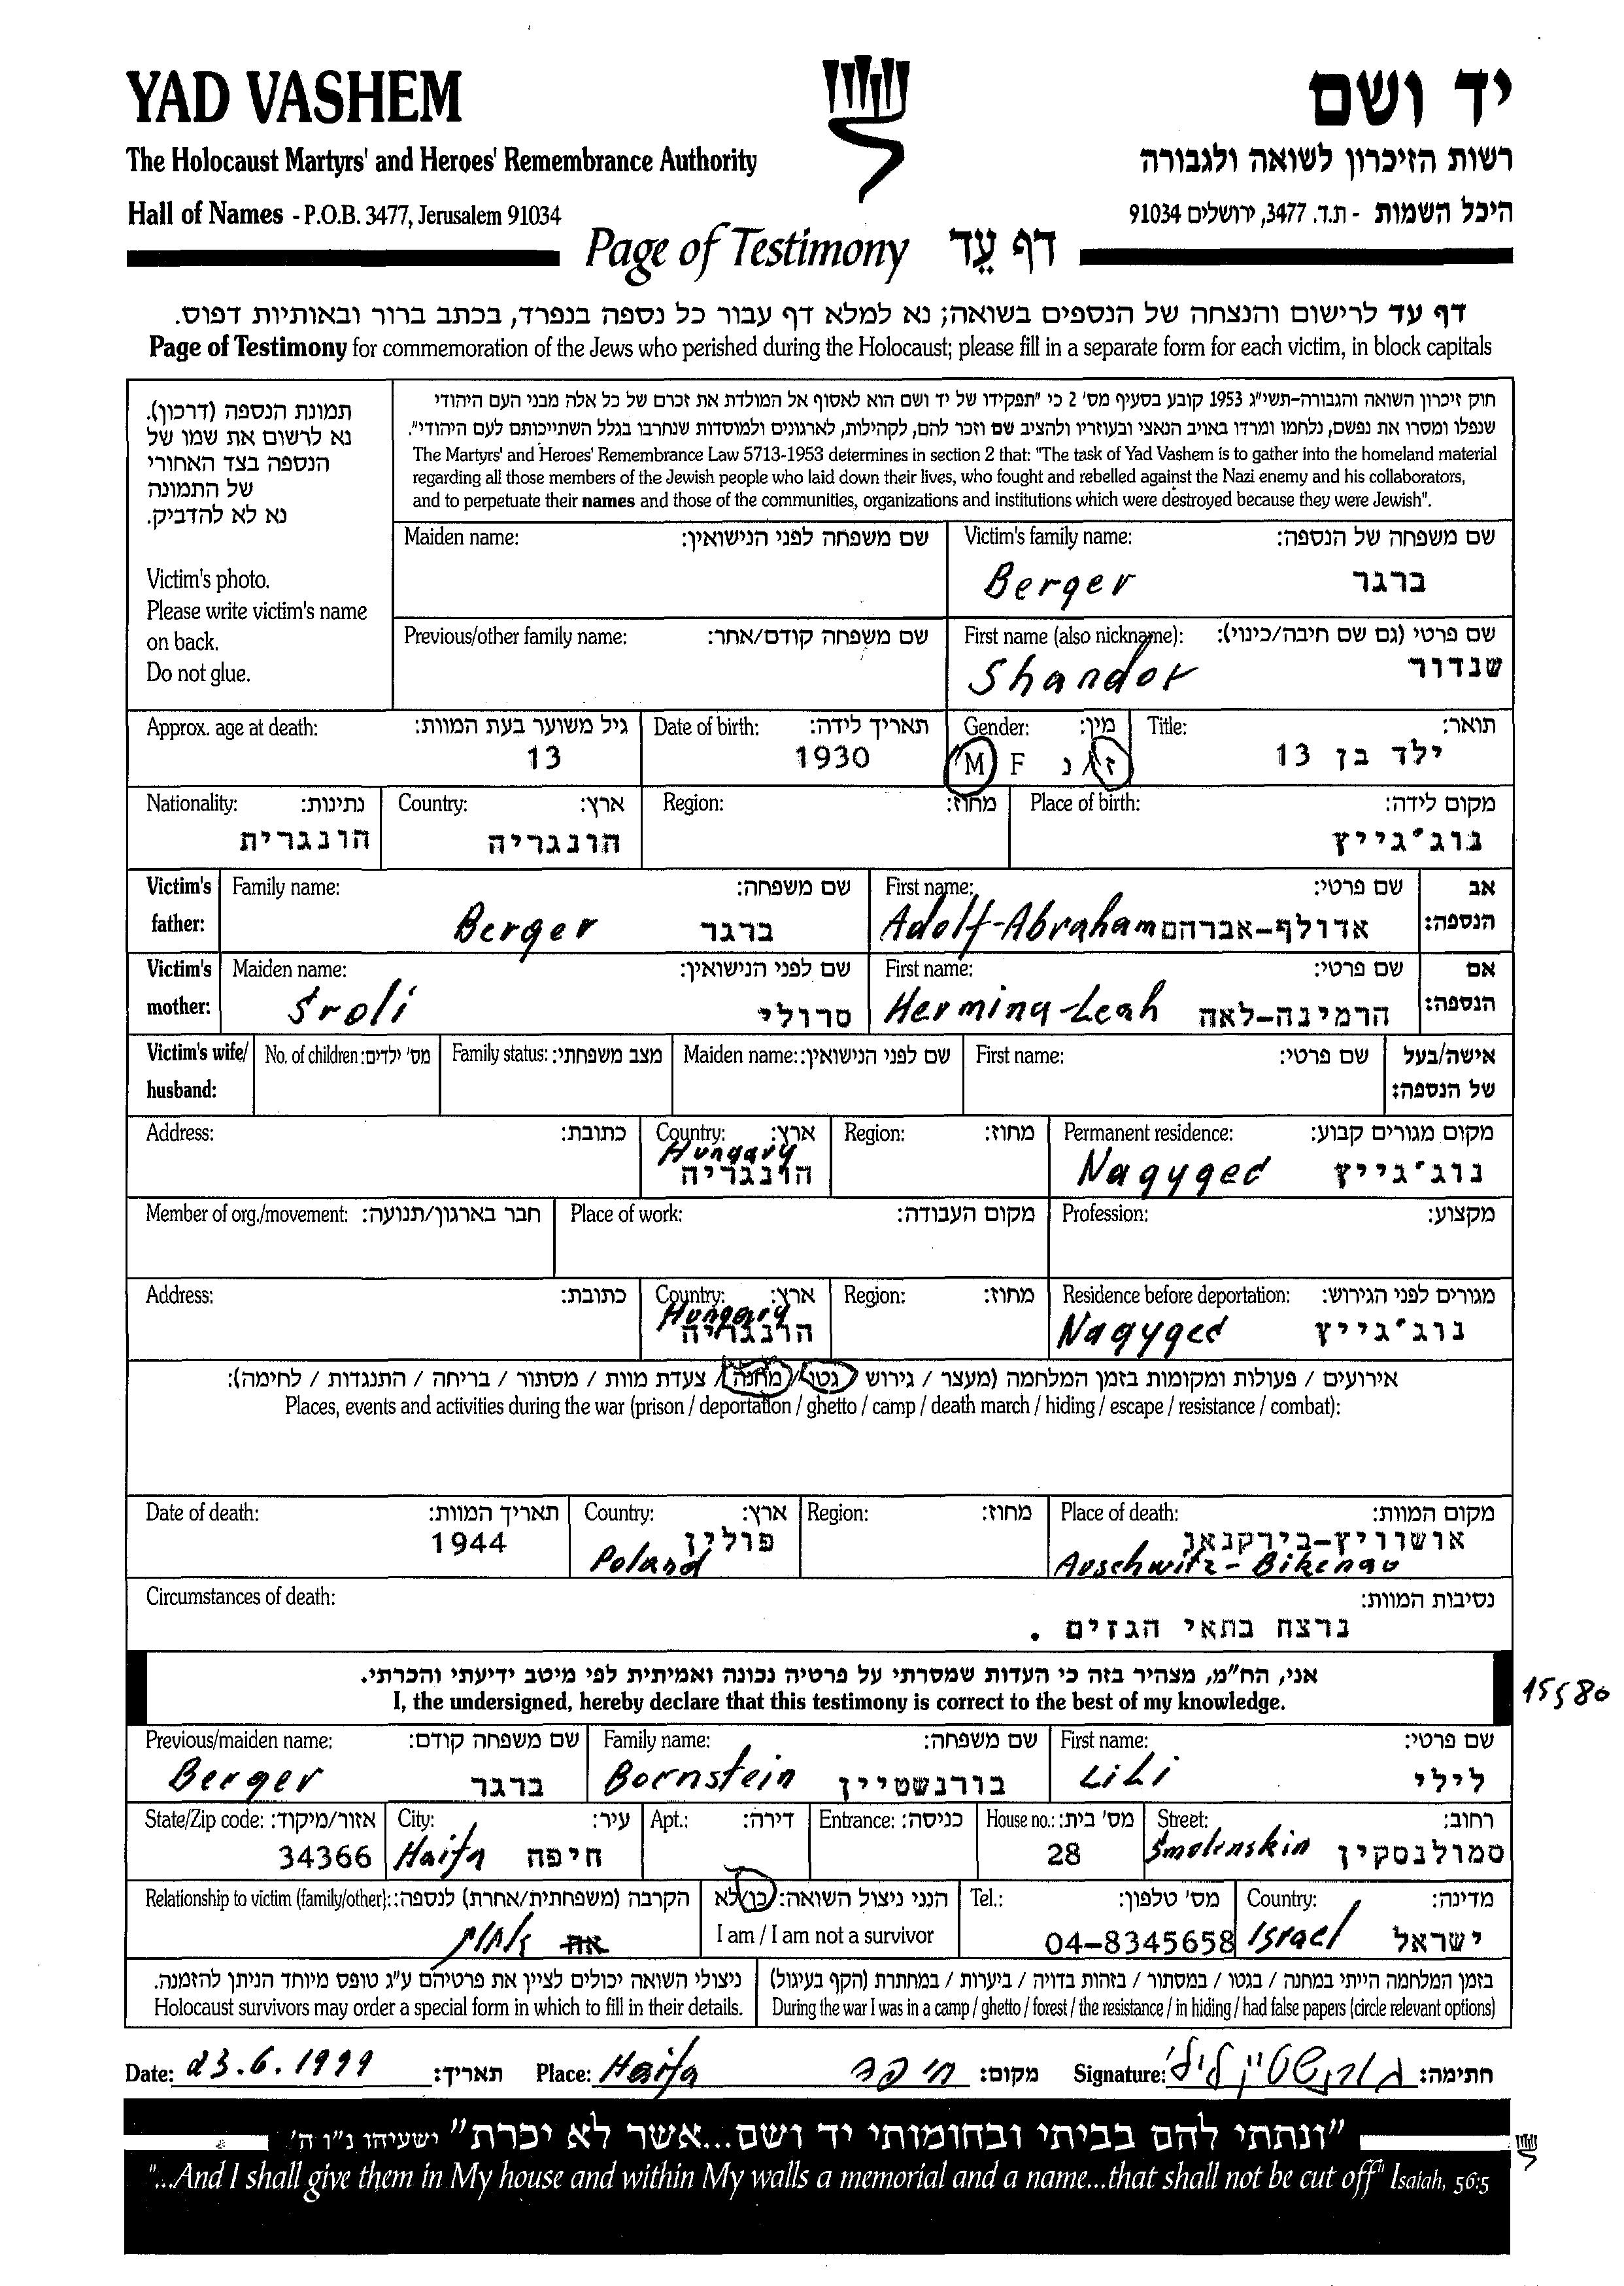 YAD VASHEM
יד ושם
The Holocaust Martyrs' and Heroes' Remembrance Authority
רשות הזיכרון לשואה ולגבורה
Hall of Names - P.O.B. 3477, Jerusalem 91034
היכל השמות - ת.ד. 3477, ירושלים 91034
Page of Testimony דף עֵד
דף עד לרישום והנצחה של הנספים בשואה; נא למלא דף עבור כל נספה בנפרד, בכתב ברור ובאותיות דפוס.
Page of Testimony for commemoration of the Jews who perished during the Holocaust; please fill in a separate form for each victim, in block capitals
תמונת הנספה (דרכון).
נא לרשום את שמו של
הנספה בצד האחורי
של התמונה
נא לא להדביק.
Victim's photo.
Please write victim's name
on back.
Do not glue.
חוק זיכרון השואה והגבורה-תשי״ג 1953 קובע בסעיף מס' 2 כי "תפקידו של יד ושם הוא לאסוף אל המולדת את זכרם של כל אלה מבני העם היהודי
שנפלו ומסרו את נפשם, נלחמו ומרדו באויב הנאצי ובעוזריו ולהציב שם וזכר להם, לקהילות, לארגונים ולמוסדות שנחרבו בגלל השתייכותם לעם היהודי".
The Martyrs' and Heroes' Remembrance Law 5713-1953 determines in section 2 that: "The task of Yad Vashem is to gather into the homeland material
regarding all those members of the Jewish people who laid down their lives, who fought and rebelled against the Nazi enemy and his collaborators,
and to perpetuate their names and those of the communities, organizations and institutions which were destroyed because they were Jewish".
Maiden name: שם משפחה לפני הנישואין:
Victim's family name: שם משפחה של הנספה:
Berger ברגר
Previous/other family name: שם משפחה קודם/אחר:
First name (also nickname): שם פרטי (גם שם חיבה/כינוי):
Shandor שנדור
Approx. age at death: גיל משוער בעת המוות: Date of birth: תאריך לידה: Gender: מין: Title: תואר:
13 1930 M F ז / נ ילד בן 13
Nationality: נתינות: Country: ארץ: Region: מחוז: Place of birth: מקום לידה:
הונגרית הונגריה נוג'גייץ
Victim's father: Family name: שם משפחה: First name: שם פרטי: אב הנספה:
Berger ברגר Adolf-Abraham אדולף-אברהם
Victim's mother: Maiden name: שם לפני הנישואין: First name: שם פרטי: אם הנספה:
Sroli סרולי Hermina-Leah הרמינה-לאה
Victim's wife/ husband: No. of children: מס' ילדים: Family status: מצב משפחתי: Maiden name: שם לפני הנישואין: First name: שם פרטי: אישה/בעל של הנספה:
Address: כתובת: Country: ארץ: Region: מחוז: Permanent residence: מקום מגורים קבוע:
Hungary הונגריה Nagyged נוג'גייץ
Member of org./movement: חבר בארגון/תנועה: Place of work: מקום העבודה: Profession: מקצוע:
Address: כתובת: Country: ארץ: Region: מחוז: Residence before deportation: מגורים לפני הגירוש:
Hungary הונגריה Nagyged נוג'גייץ
אירועים / פעולות ומקומות בזמן המלחמה (מעצר / גירוש / גטו / מחנה / צעדת מוות / מסתור / בריחה / התנגדות / לחימה):
Places, events and activities during the war (prison / deportation / ghetto / camp / death march / hiding / escape / resistance / combat):
Date of death: תאריך המוות: Country: ארץ: Region: מחוז: Place of death: מקום המוות:
1944 פולין אושוויץ-בירקנאו
Poland Auschwitz-Bikenau
Circumstances of death: נסיבות המוות:
נרצח בתאי הגזים .
אני, הח״מ, מצהיר בזה כי העדות שמסרתי על פרטיה נכונה ואמיתית לפי מיטב ידיעתי והכרתי.
I, the undersigned, hereby declare that this testimony is correct to the best of my knowledge.
15580
Previous/maiden name: שם משפחה קודם: Family name: שם משפחה: First name: שם פרטי:
Berger ברגר Bornstein בורנשטיין Lili לילי
State/Zip code: אזור/מיקוד: City: עיר: Apt.: דירה: Entrance: כניסה: House no.: מס' בית: Street: רחוב:
34366 Haifa חיפה 28 Smolenskin סמולנסקין
Relationship to victim (family/other): הקרבה (משפחתית/אחרת) לנספה: הנני ניצול השואה: כן/לא Tel.: מס' טלפון: Country: מדינה:
אח אחות I am / I am not a survivor 04-8345658 Israel ישראל
ניצולי השואה יכולים לציין את פרטיהם ע״ג טופס מיוחד הניתן להזמנה.
Holocaust survivors may order a special form in which to fill in their details.
בזמן המלחמה הייתי במחנה / בגטו / במסתור / בזהות בדויה / ביערות / במחתרת (הקף בעיגול)
During the war I was in a camp / ghetto / forest / the resistance / in hiding / had false papers (circle relevant options)
Date: 23.6.1999 תאריך: Place: Haifa חיפה מקום: Signature: בורנשטיין לילי חתימה:
"ונתתי להם בביתי ובחומותי יד ושם...אשר לא יכרת" ישעיהו נ״ו ה'
"...And I shall give them in My house and within My walls a memorial and a name...that shall not be cut off" Isaiah, 56:5